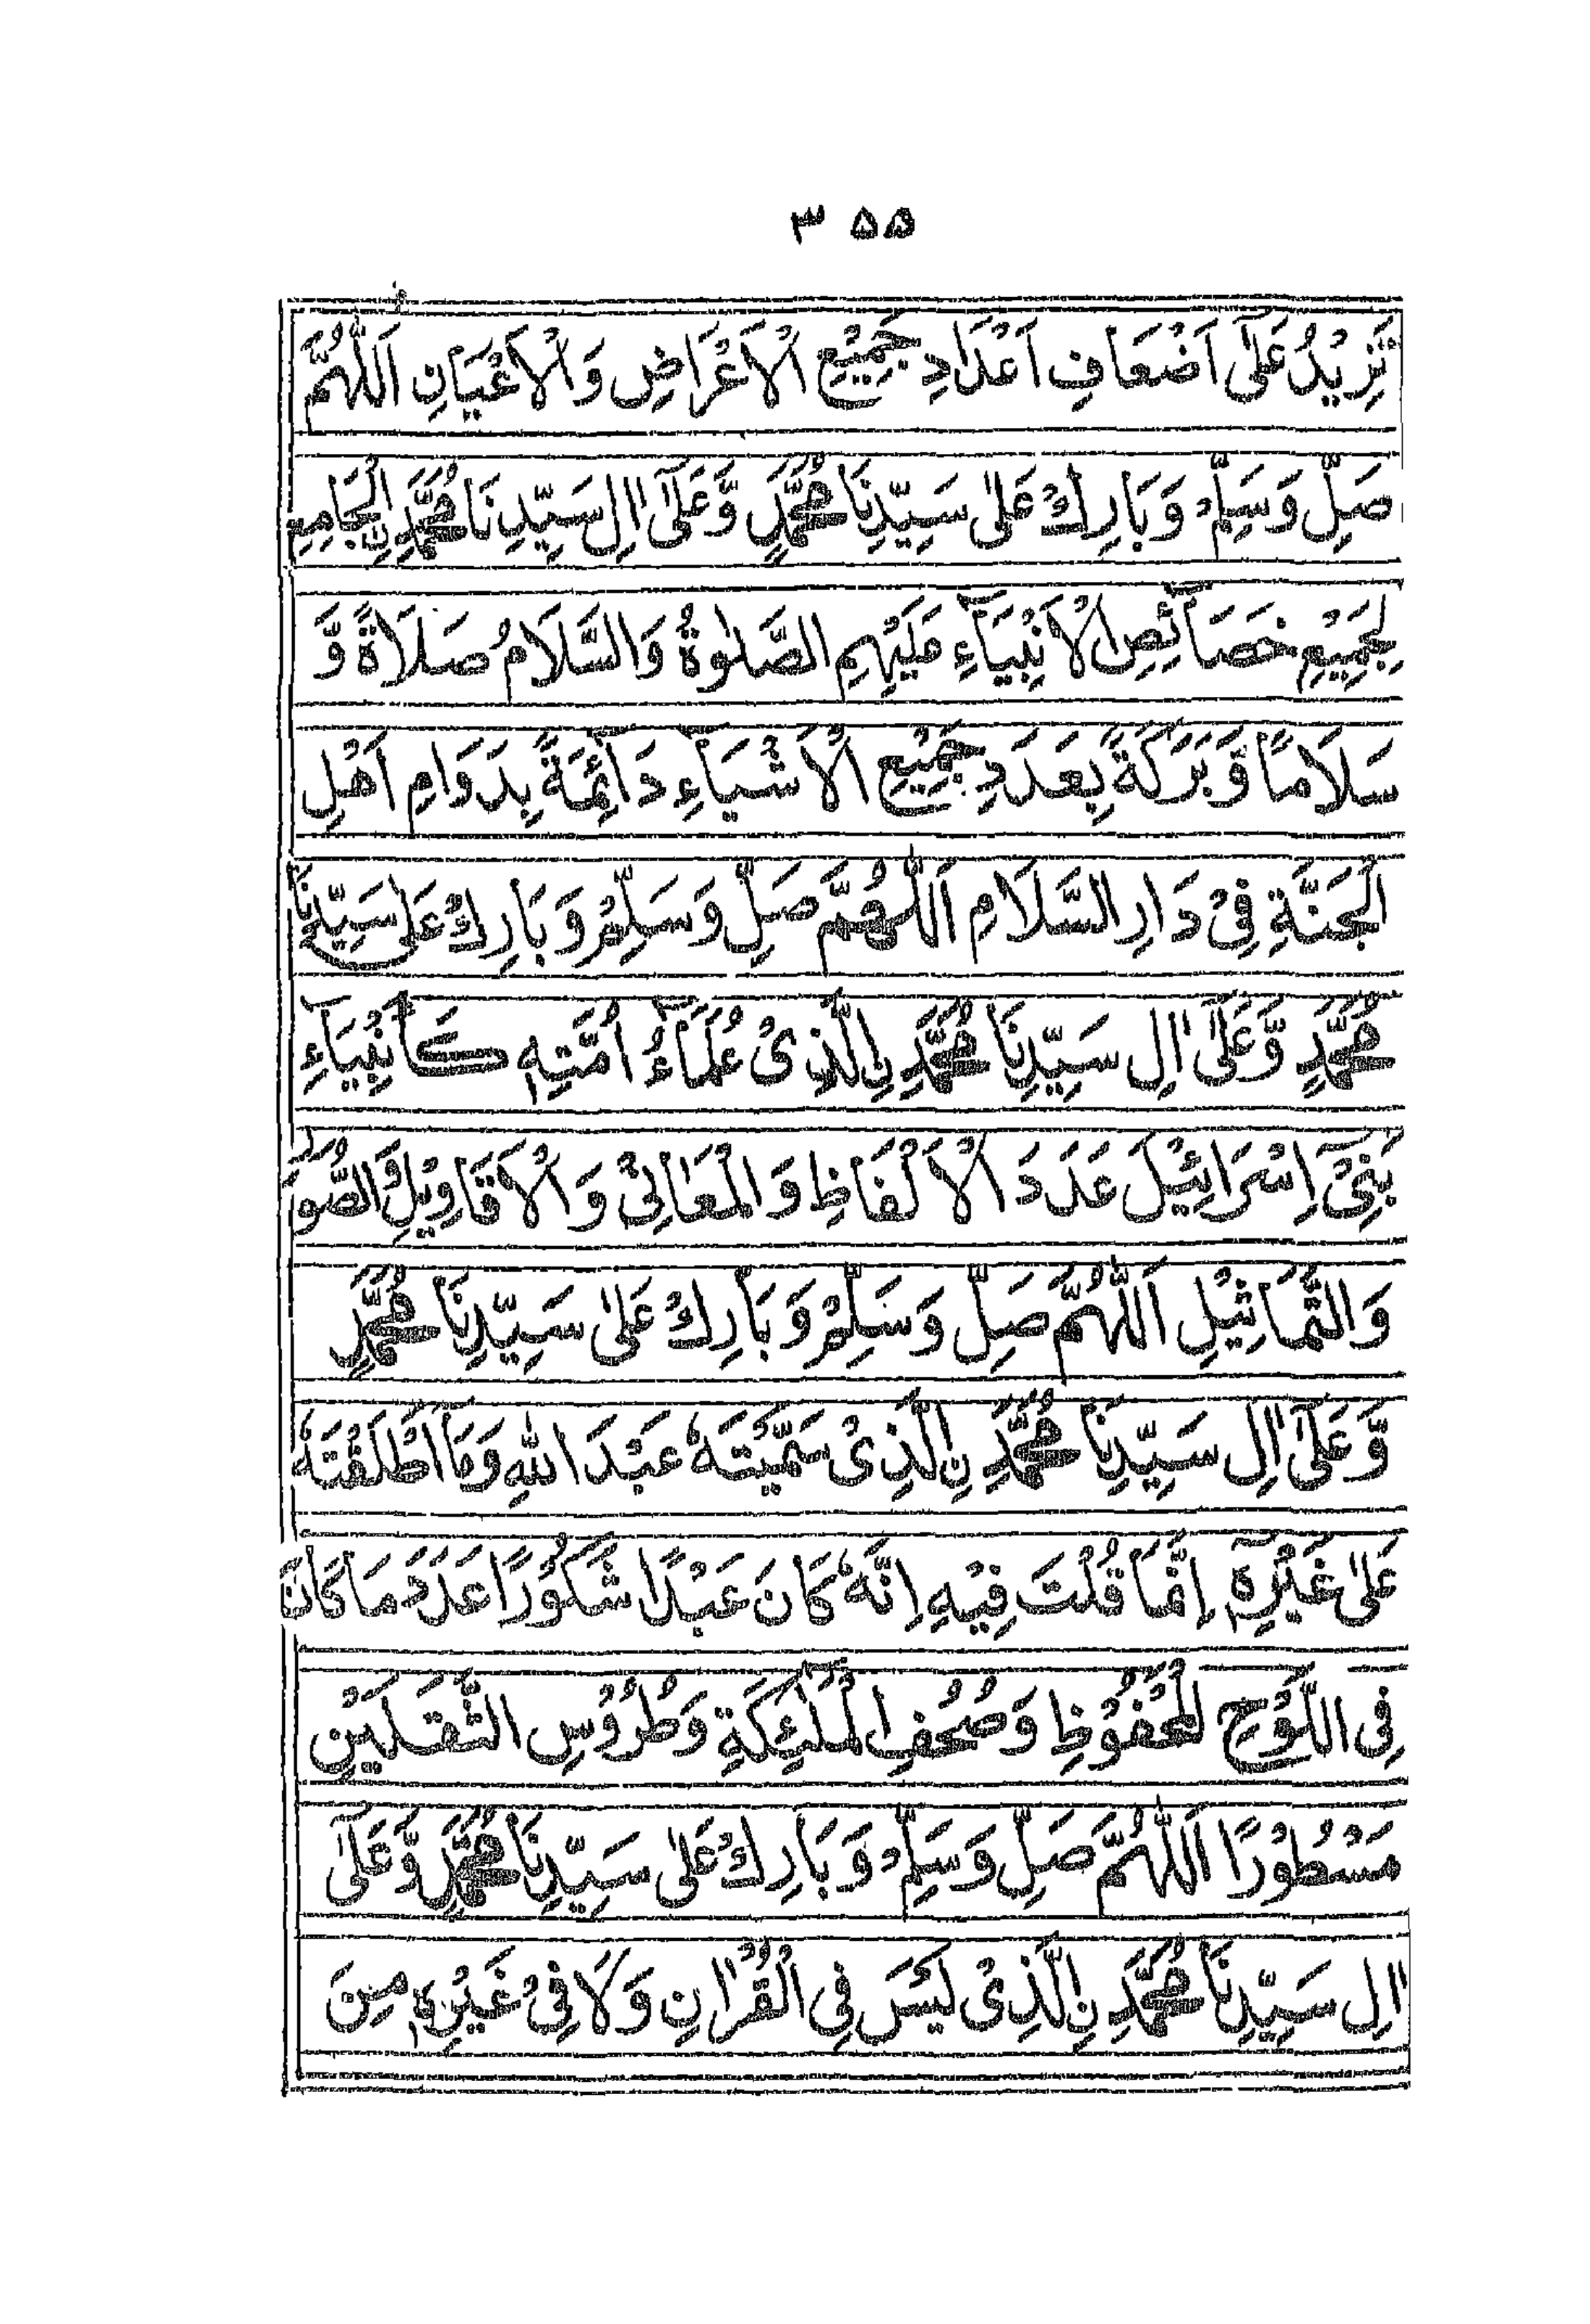 ۳۵۵
تَزِيْدُ عَلٰٓى اَضْعَافِ اَعْدَادِ جَمِيْعِ الْاَعْرَاضِ وَالْاَعْيَانِ اَللّٰهُمَّ
صَلِّ وَسَلِّمْ وَبَارِكْ عَلٰى سَيِّدِنَا مُحَمَّدٍ وَّعَلٰٓى اٰلِ سَيِّدِنَا مُحَمَّدِنِ الْجَامِعِ
لِجَمِيْعِ خَصَآئِصِ الْاَنْبِيَآءِ عَلَيْهِمِ الصَّلٰوةُ وَالسَّلَامُ صَلَاةً وَّ
سَلَامًا وَّبَرَكَةً بِعَدَدِ جَمِيْعِ الْاَشْيَآءِ دَآئِمَةً بِدَوَامِ اَهْلِ
الْجَنَّةِ فِيْ دَارِ السَّلَامِ اَللّٰهُمَّ صَلِّ وَسَلِّمْ وَبَارِكْ عَلٰى سَيِّدِنَا
مُحَمَّدٍ وَّعَلٰٓى اٰلِ سَيِّدِنَا مُحَمَّدِ نِ الَّذِىْ عُلَمَآءُ اُمَّتِهٖ كَاَنْبِيَآءِ
بَنِىْٓ اِسْرَائِيْلَ عَدَدَ الْاَلْفَاظِ وَالْمَعَانِىْ وَالْاَقَاوِيْلِ وَالصُّوَرِ
وَالتَّمَاثِيْلِ اَللّٰهُمَّ صَلِّ وَسَلِّمْ وَبَارِكْ عَلٰى سَيِّدِنَا مُحَمَّدٍ
وَّعَلٰٓى اٰلِ سَيِّدِنَا مُحَمَّدِ نِ الَّذِىْ سَمَّيْتَهٗ عَبْدَ اللّٰهِ وَمَا اَطْلَقْتَهٗ
عَلٰى غَيْرِهٖٓ اِنَّمَا قُلْتَ فِيْهِ اِنَّهٗ كَانَ عَبْدًا شَكُوْرًا عَدَدَ مَا كَانَ
فِى اللَّوْحِ الْمَحْفُوْظِ وَصُحُفِ الْمَلٰٓئِكَةِ وَطُرُوْسِ الثَّقَلَيْنِ
مَسْطُوْرًا اَللّٰهُمَّ صَلِّ وَسَلِّمْ وَبَارِكْ عَلٰى سَيِّدِنَا مُحَمَّدٍ وَّعَلٰٓى
اٰلِ سَيِّدِنَا مُحَمَّدِ نِ الَّذِىْ لَيْسَ فِى الْقُرْاٰنِ وَلَا فِىْ غَيْرِهٖ مِنَ